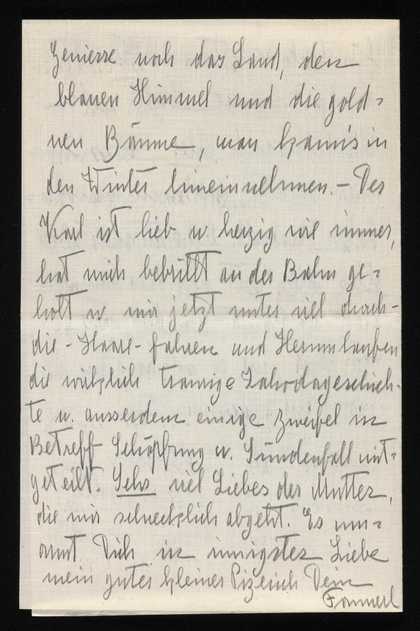 Geniesse noch das Land, den
blauen Himmel und die gold-
nen Bäume, man kann's in
den Winter hineinnehmen. – Der
Karl ist lieb u herzig wie immer,
hat mich bebrillt an der Bahn ge-
holt u. mir jetzt unter viel durch-
die-Haare-fahren und Herumlaufen
die wirklich traurige Jahrdageschich-
te u. ausserdem einige Zweifel in
Betreff Schöpfung u. Sündenfall mit-
geteilt. Sehr viel Liebes der Mutter,
die mir schrecklich abgeht. Es um-
armt Dich in innigster Liebe
mein gutes kleines Dein